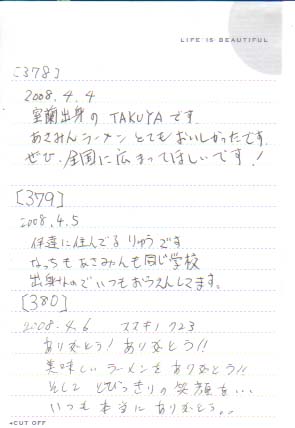 LIFE IS BEAUTIFUL
[378]
2008.4.4
室蘭出身の TAKUYA です.
あさみんラーメン とてもおいしかったです.
ぜひ、全国に広まってほしいです!
[379]
2008.4.5
伊達に住んでる りゅうです
なっちも あさみんも同じ学校
出身なので いつもおうえんしてます。
[380]
2008.4.6 ススキノ 023
ありがとう! ありがとう!!
美味しいラーメンを ありがとう!!
そして とびっきりの笑顔を...
いつも 本当に ありがとう..
◂CUT OFF